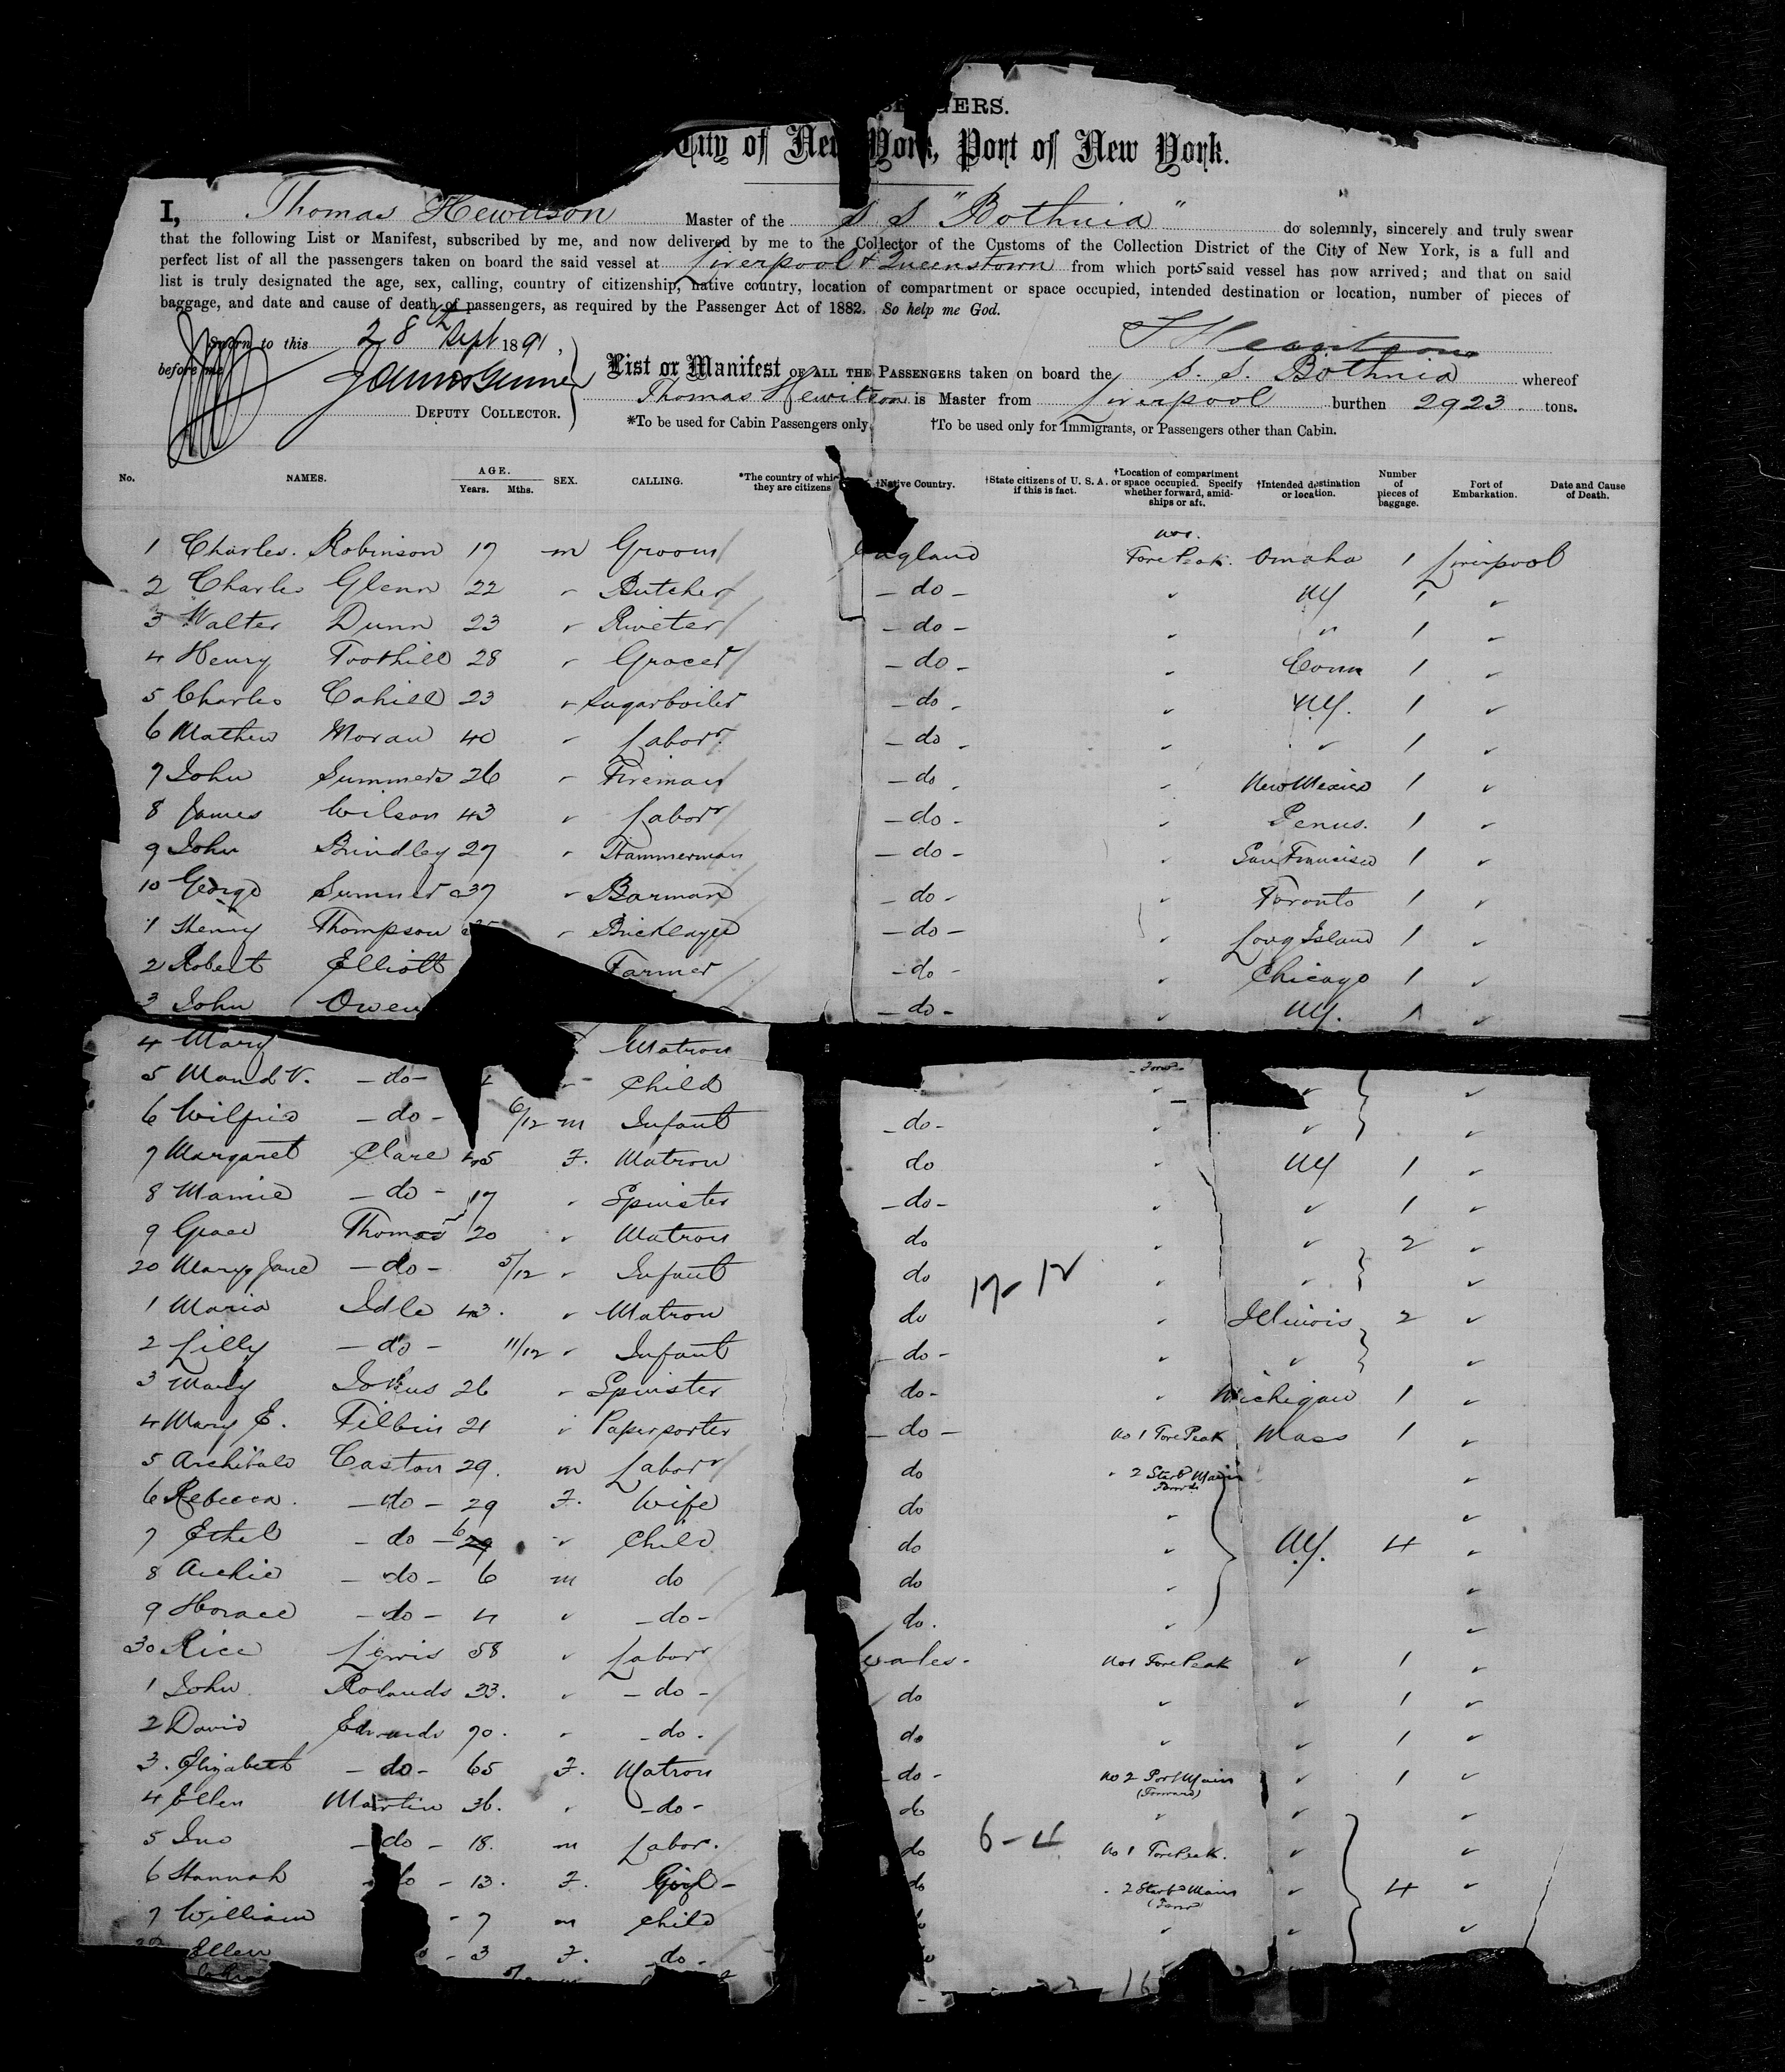 GERS.
City of New York, Port of New York.
I, Thomas Hewitson Master of the S S "Bothnia" do solemnly, sincerely and truly swear
that the following List or Manifest, subscribed by me, and now delivered by me to the Collector of the Customs of the Collection District of the City of New York, is a full and
perfect list of all the passengers taken on board the said vessel at Liverpool & Queenstown from which ports said vessel has now arrived; and that on said
list is truly designated the age, sex, calling, country of citizenship, native country, location of compartment or space occupied, intended destination or location, number of pieces of
baggage, and date and cause of death of passengers, as required by the Passenger Act of 1882. So help me God.
Sworn to this 28th Sept 1891, T Hewitson
before me
List or Manifest OF ALL THE PASSENGERS taken on board the S. S. Bothnia whereof
DEPUTY COLLECTOR. Thomas Hewitson is Master from Liverpool burthen 2923 tons.
*To be used for Cabin Passengers only. †To be used only for Immigrants, or Passengers other than Cabin.
No. NAMES. AGE. Years. Mths. SEX. CALLING. *The country of which they are citizens †Native Country. †State citizens of U. S. A. if this is fact. †Location of compartment or space occupied. Specify whether forward, amidships or aft. †Intended destination or location. Number of pieces of baggage. Port of Embarkation. Date and Cause of Death.
1 Charles. Robinson 17 m Groom England No1. Fore Peak. Omaha 1 Liverpool
2 Charles Glenn 22 " Butcher - do - " NY 1 "
3 Walter Dunn 23 " Riveter - do - " " 1 "
4 Henry Toothill 28 " Grocer - do - " Conn 1 "
5 Charles Cahill 23 " Sugarboiler - do - " NY. 1 "
6 Mathew Moran 40 " Labor. - do - " " 1 "
7 John Summers 26 " Fireman - do - " New Mexico 1 "
8 James Wilson 43 " Labor - do - " Penns. 1 "
9 John Brindley 27 " Hammerman - do - " San Francisco 1 "
10 George Sumner 37 " Barman - do - " Toronto 1 "
1 Henry Thompson " Bricklayer - do - " Long Island 1 "
2 Robert Elliott Farmer - do - " Chicago 1 "
3 John Owen - do - " NY. 1 "
4 Mary Matron
5 Maud V. - do - " Child " " "
6 Wilfrid - do - 6/12 m Infant - do - " " "
7 Margaret Clare 45 F. Matron do " NY 1 "
8 Mamie - do - 17 " Spinster - do - " " 1 "
9 Grace Thomas 20 " Matron do " " 2 "
20 Mary Jane - do - 5/12 " Infant do " " "
17-12
1 Maria Idle 43. " Matron do " Illinois 2 "
2 Lilly - do - 11/12 " Infant - do - " " "
3 Mary 26 " Spinster do - " Michigan 1 "
4 Mary E. Filbin 21 " Paper porter - do - No 1 Fore Peak Mass 1 "
5 Archibald Caston 29. m Labor do " 2 Starbd Main Forwd "
6 Rebecca. - do - 29 F. Wife do " "
7 Ethel - do - 6 " Child do " NY. 4 "
8 Archie - do - 6 m do do " "
9 Horace - do - 4 " - do - do. " "
30 Rice Lewis 58 " Labor Wales - No1 Fore Peak " 1 "
1 John Rolands 33. " - do - do " " 1 "
2 David Edwards 70. " - do - do " " 1 "
3. Elizabeth - do - 65 F. Matron - do - No 2 Port Main (Forward) " 1 "
4 Ellen Martin 36. " - do - do " " "
5 Jno - do - 18. m Labor. do 6-4 No 1 Fore Peak. " "
6 Hannah do - 13. F. Girl - do " 2 Starbd Main (Forwd) " 4 "
7 William - 7 m Child " " "
Ellen - 3 F. - do -